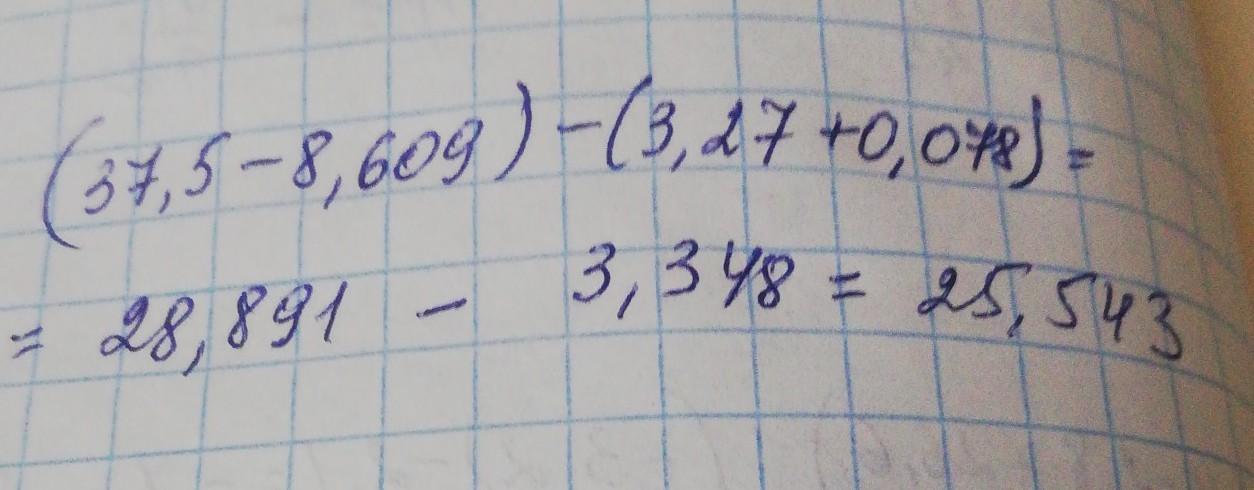 (37,5-8,609)-(3,27+0,078)=
= 28,891 - 3,348 = 25,543